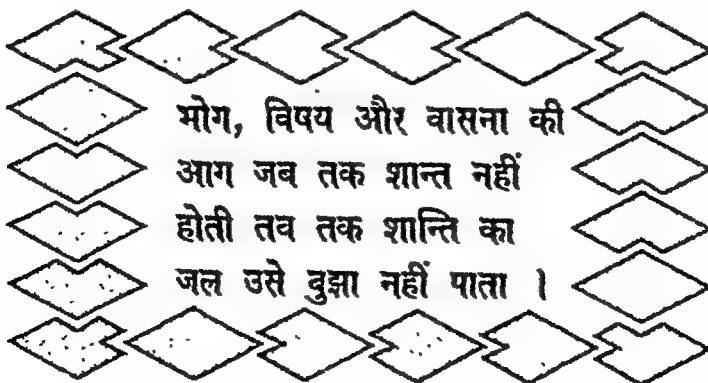 भोग, विषय और वासना की
आग जब तक शान्त नहीं
होती तव तक शान्ति का
जल उसे वुझा नहीं पाता ।